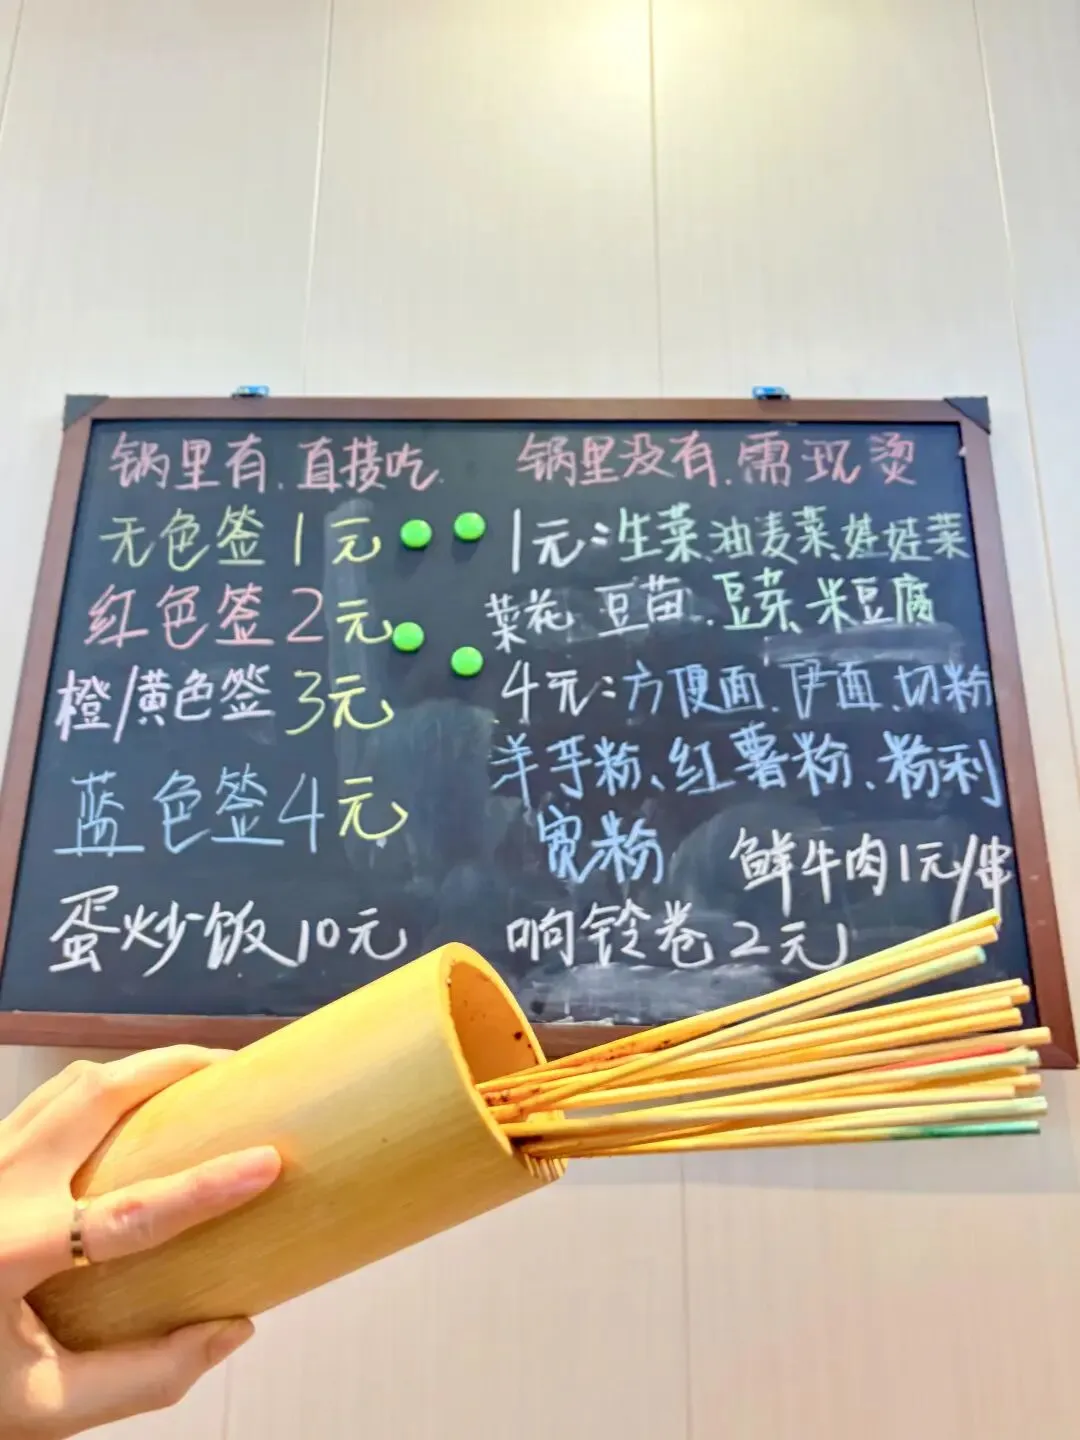 锅里有.直接吃.
无色签1元
红色签2元
橙/黄色签3元
蓝色签4元
蛋炒饭10元
锅里没有.需现烫
1元:生菜.油麦菜.娃娃菜
菜花 豆苗.豆芽、米豆腐
4元:方便面.伊面.切粉
洋芋粉、红薯粉、粉利
宽粉
鲜牛肉1元/串
响铃卷2元